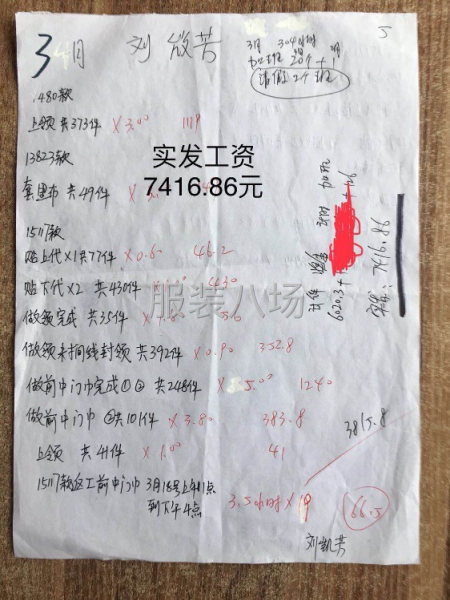 3月 刘微芳
5
3月 304小时
加班 20个+1
请假2个班
1480款
上领 共373件 ×3.00 1119
13823款
套里布 共49件
实发工资
7416.86元
15117款
贴上代×1共77件 ×0.6 46.2
贴下代×2 共430件 430
做领完成 共35件
做领未扪线封领 共392件 ×0.90 352.8
做前中门巾完成①② 共248件 ×5.00 1240
做前中门巾 ②共101件 ×3.80 383.8
上领 共41件 ×1.00 41
15117款返工前中门巾 3月18号上午11点
到下午4点
3.5小时×19
66.5
3815.8
计件
6020.3+
加班
实发: 7416.86
服装八场